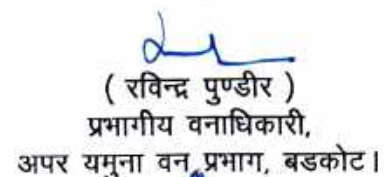 ( रविन्द्र पुण्डीर )
प्रभागीय वनाधिकारी,
अपर यमुना वन प्रभाग, बडकोट।